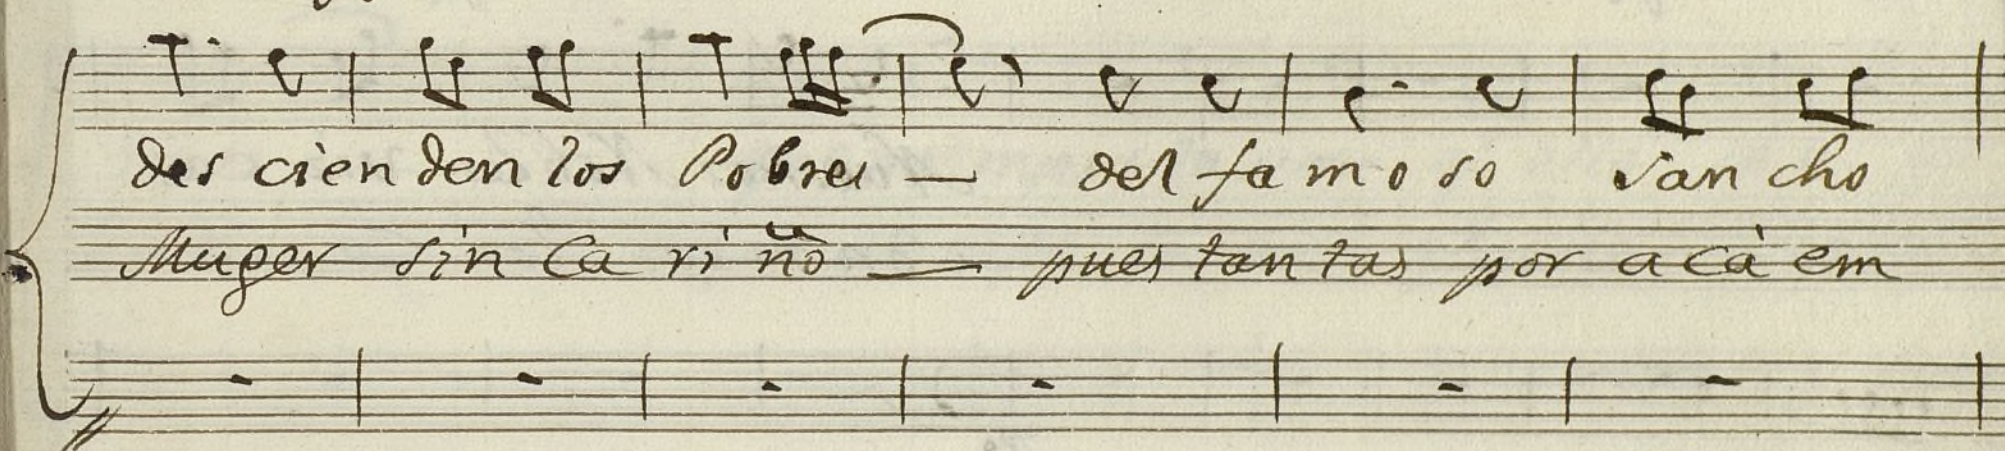 des cien den los Pobres — del fa mo so San cho
Muger sin Ca ri ño — pues tan tas por a cà em